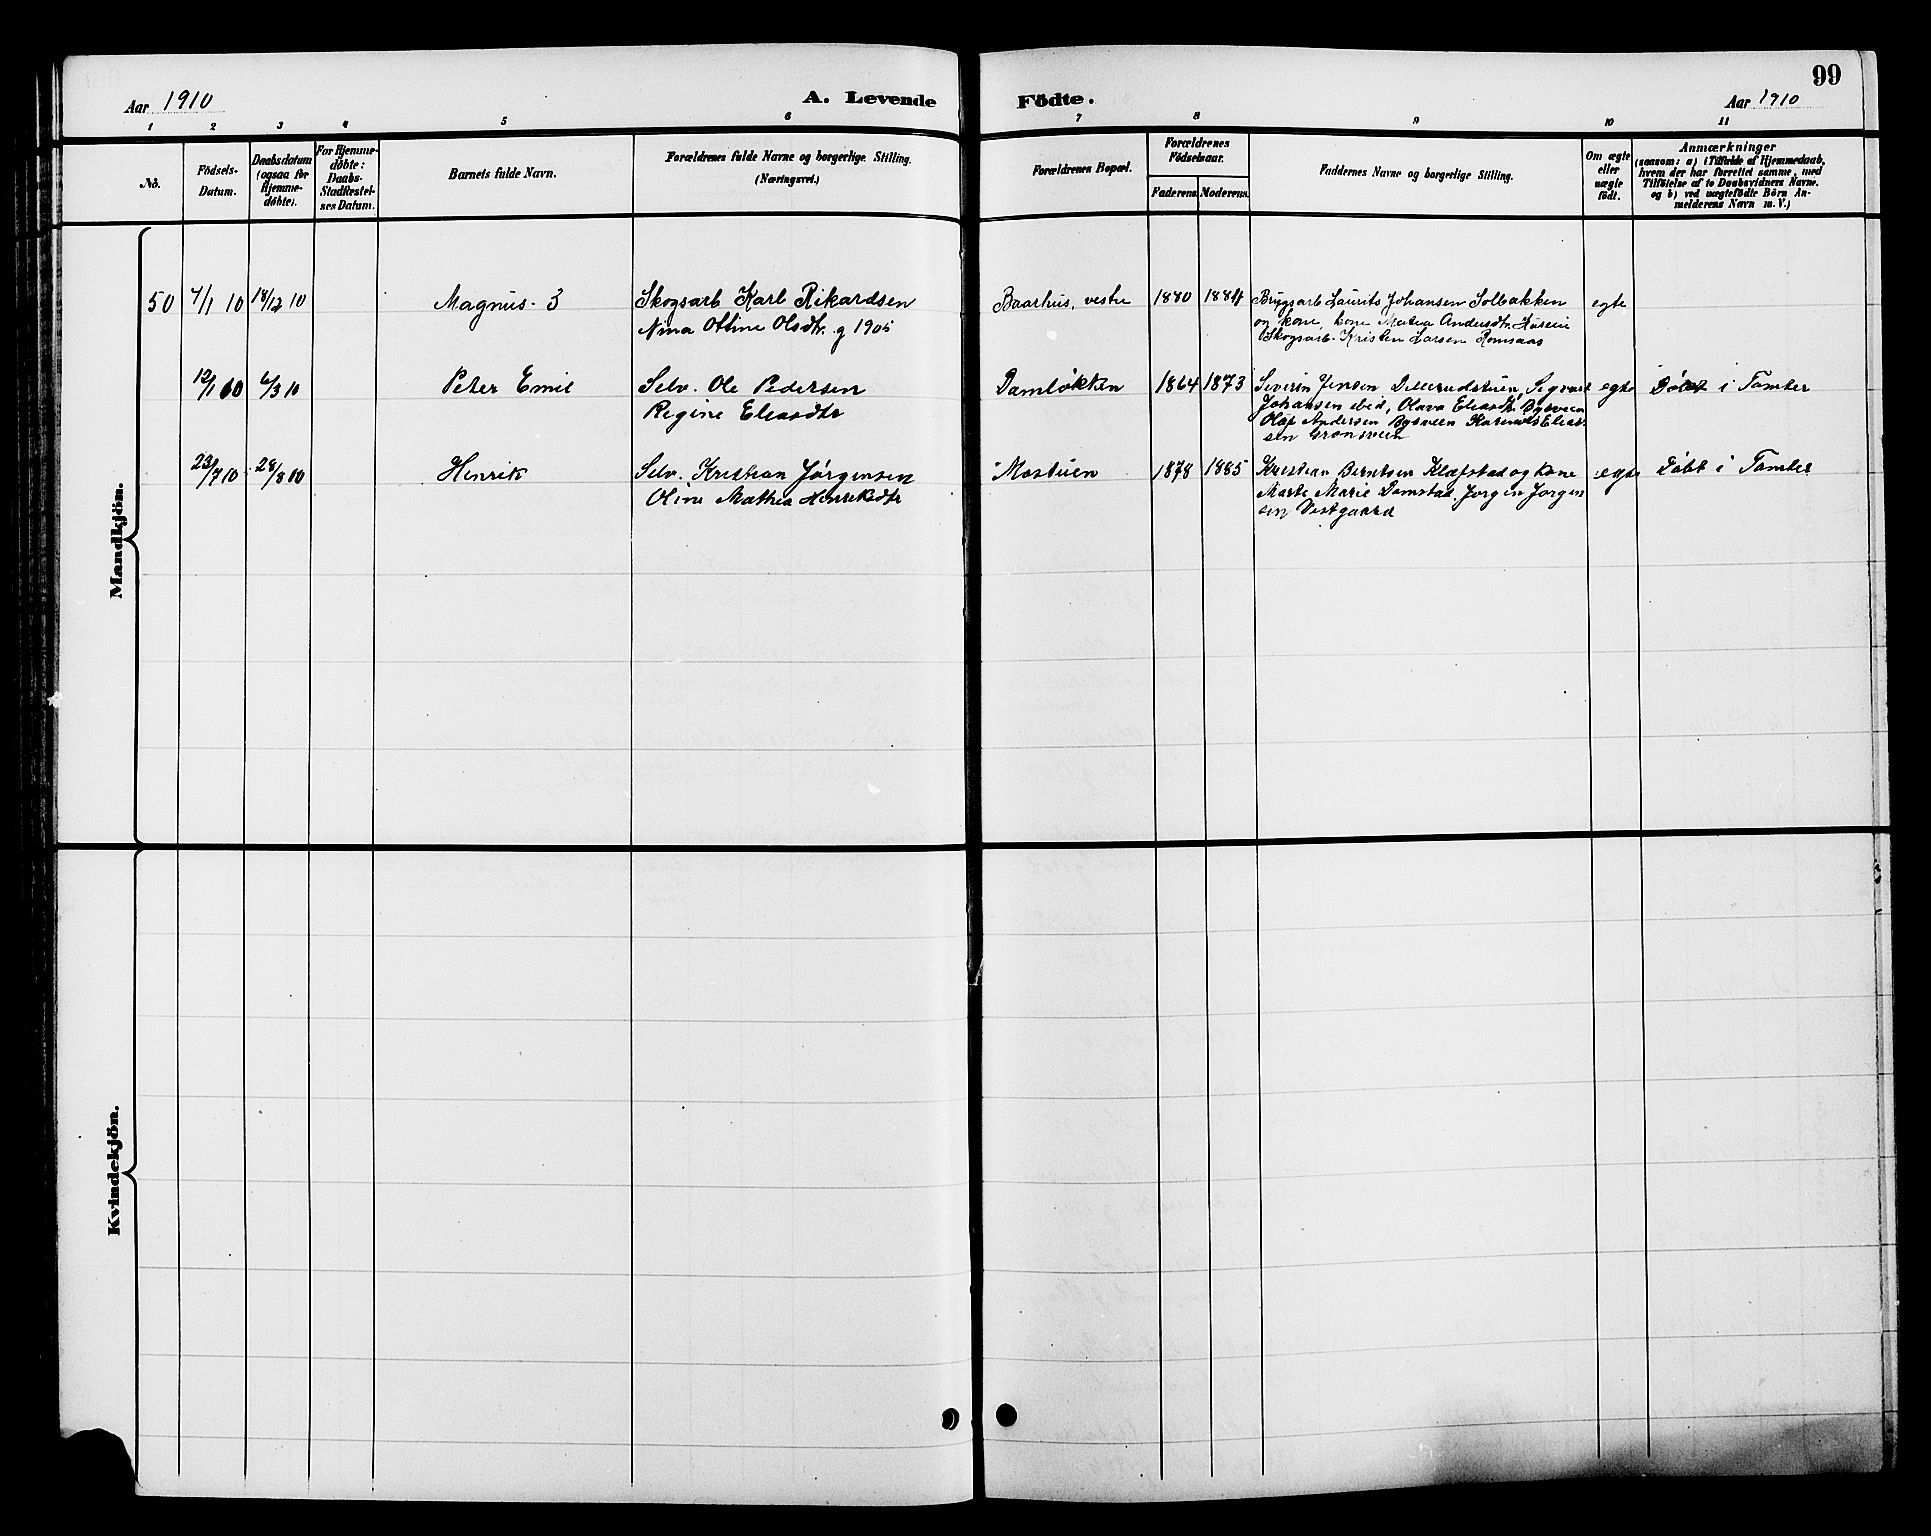 99
Aar 1910
A. Levende Födte.
Aar 1910
1 2 3 4 5 6 7 8 9 10 11
No.
Födsels-
Datum.
Daabsdatum
(ogsaa for
Hjemme-
døbte).
For Hjemme-
døbte:
Daabs-
Stadfæstel-
ses Datum.
Barnets fulde Navn.
Forældrenes fulde Navne og borgerlige Stilling.
(Næringsvei.)
Forældrenes Bopæl.
Forældrenes
Födselsaar.
Faderens. Moderens.
Faddernes Navne og borgerlige Stilling.
Om ægte
eller
uægte
födt.
Anmærkninger
(saasom: a) i Tilfælde af Hjemmedaab,
hvem der har forrettet samme, med
Tilföielse af to Daabsvidners Navne.
og b) ved uægtefödte Börn An-
melderens Navn m. V.)
Mandkjön.
50 7/1 10 18/12 10 Magnus- 3 Skogsarb Karl Rikardsen
Nina Ottine Olsdtr. g 1905
Baarhus, vestre 1880 1884 Brugsarb Laurits Johansen Solbakken
og kone, kone Matea Andersdtr.
Skogsarb. Kristen Larsen Romsaas
egte
12/1 10 6/3 10 Peter Emil Selv. Ole Pedersen
Regine Eliasdtr
Damløkken 1864 1873 Severin Jensen Sigvart
Johansen ibid, Olava Eliasdtr. Bysveen
Olaf Andersen Bysveen Elias-
sen Grønsveen
egte Døbt i Tomter
23/7 10 28/8 10 Henrik Selv. Kristian Jørgensen
Oline Mathea Henriksdtr
Mostuen 1878 1885 Kristian Berntsen Klæfstad og kone
Marte Marie Damstad. Jørgen Jørgen
sen Vestgaard
egte Døbt i Tomter
Kvindekjön.